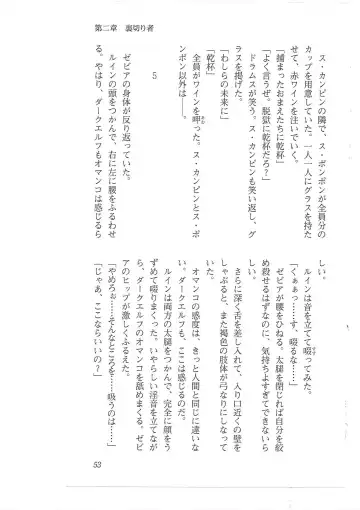 第二章 裏切り者
ス・カンビンの隣で、ス・ボンボンが全員分の
カップを用意していた。一人一人にグラスを持た
せて、赤ワインを注いでいく。
「捕まったおまえたちに乾杯」
「よく言うぜ。脱獄に乾杯だろ？」
ドラムスが笑う。ス・カンビンも笑い返し、グ
ラスを掲げた。
「わしらの未来に」
「乾杯」
全員がワインを呷った。ス・カンビンとス・ボ
ンボン以外は――。
5
ゼビアの身体が反り返っていた。
ルインの頭をつかんで、右に左に腰をふるわせ
る。やはり、ダークエルフもオマンコは感じるら
しい。
ルインは音を立てて啜ってみた。
「くぁぁっ……す、啜るな……」
ゼビアが腰をひねる。太腿を閉じれば自分を絞
め殺せるはずなのに、気持ちよすぎてできないら
しい。
さらに深く舌を差し入れて、入り口近くの壁を
しゃぶると、また褐色の肢体が弓なりにしなっ
た。
オマンコの感度は、きっと人間と同じに違いな
い。ダークエルフも、ここは感じるのだ。
ルインは両方の太腿をつかんで、完全に顔をう
ずめて啜りまくった。いやらしい淫音を立てなが
ら、ダークエルフのオマンコを舐めまくる。ゼビ
アのヒップが激しくふるえた。
「やめろぉ……そんなところを……吸うのは……」
「じゃあ、ここならいいの？」
53